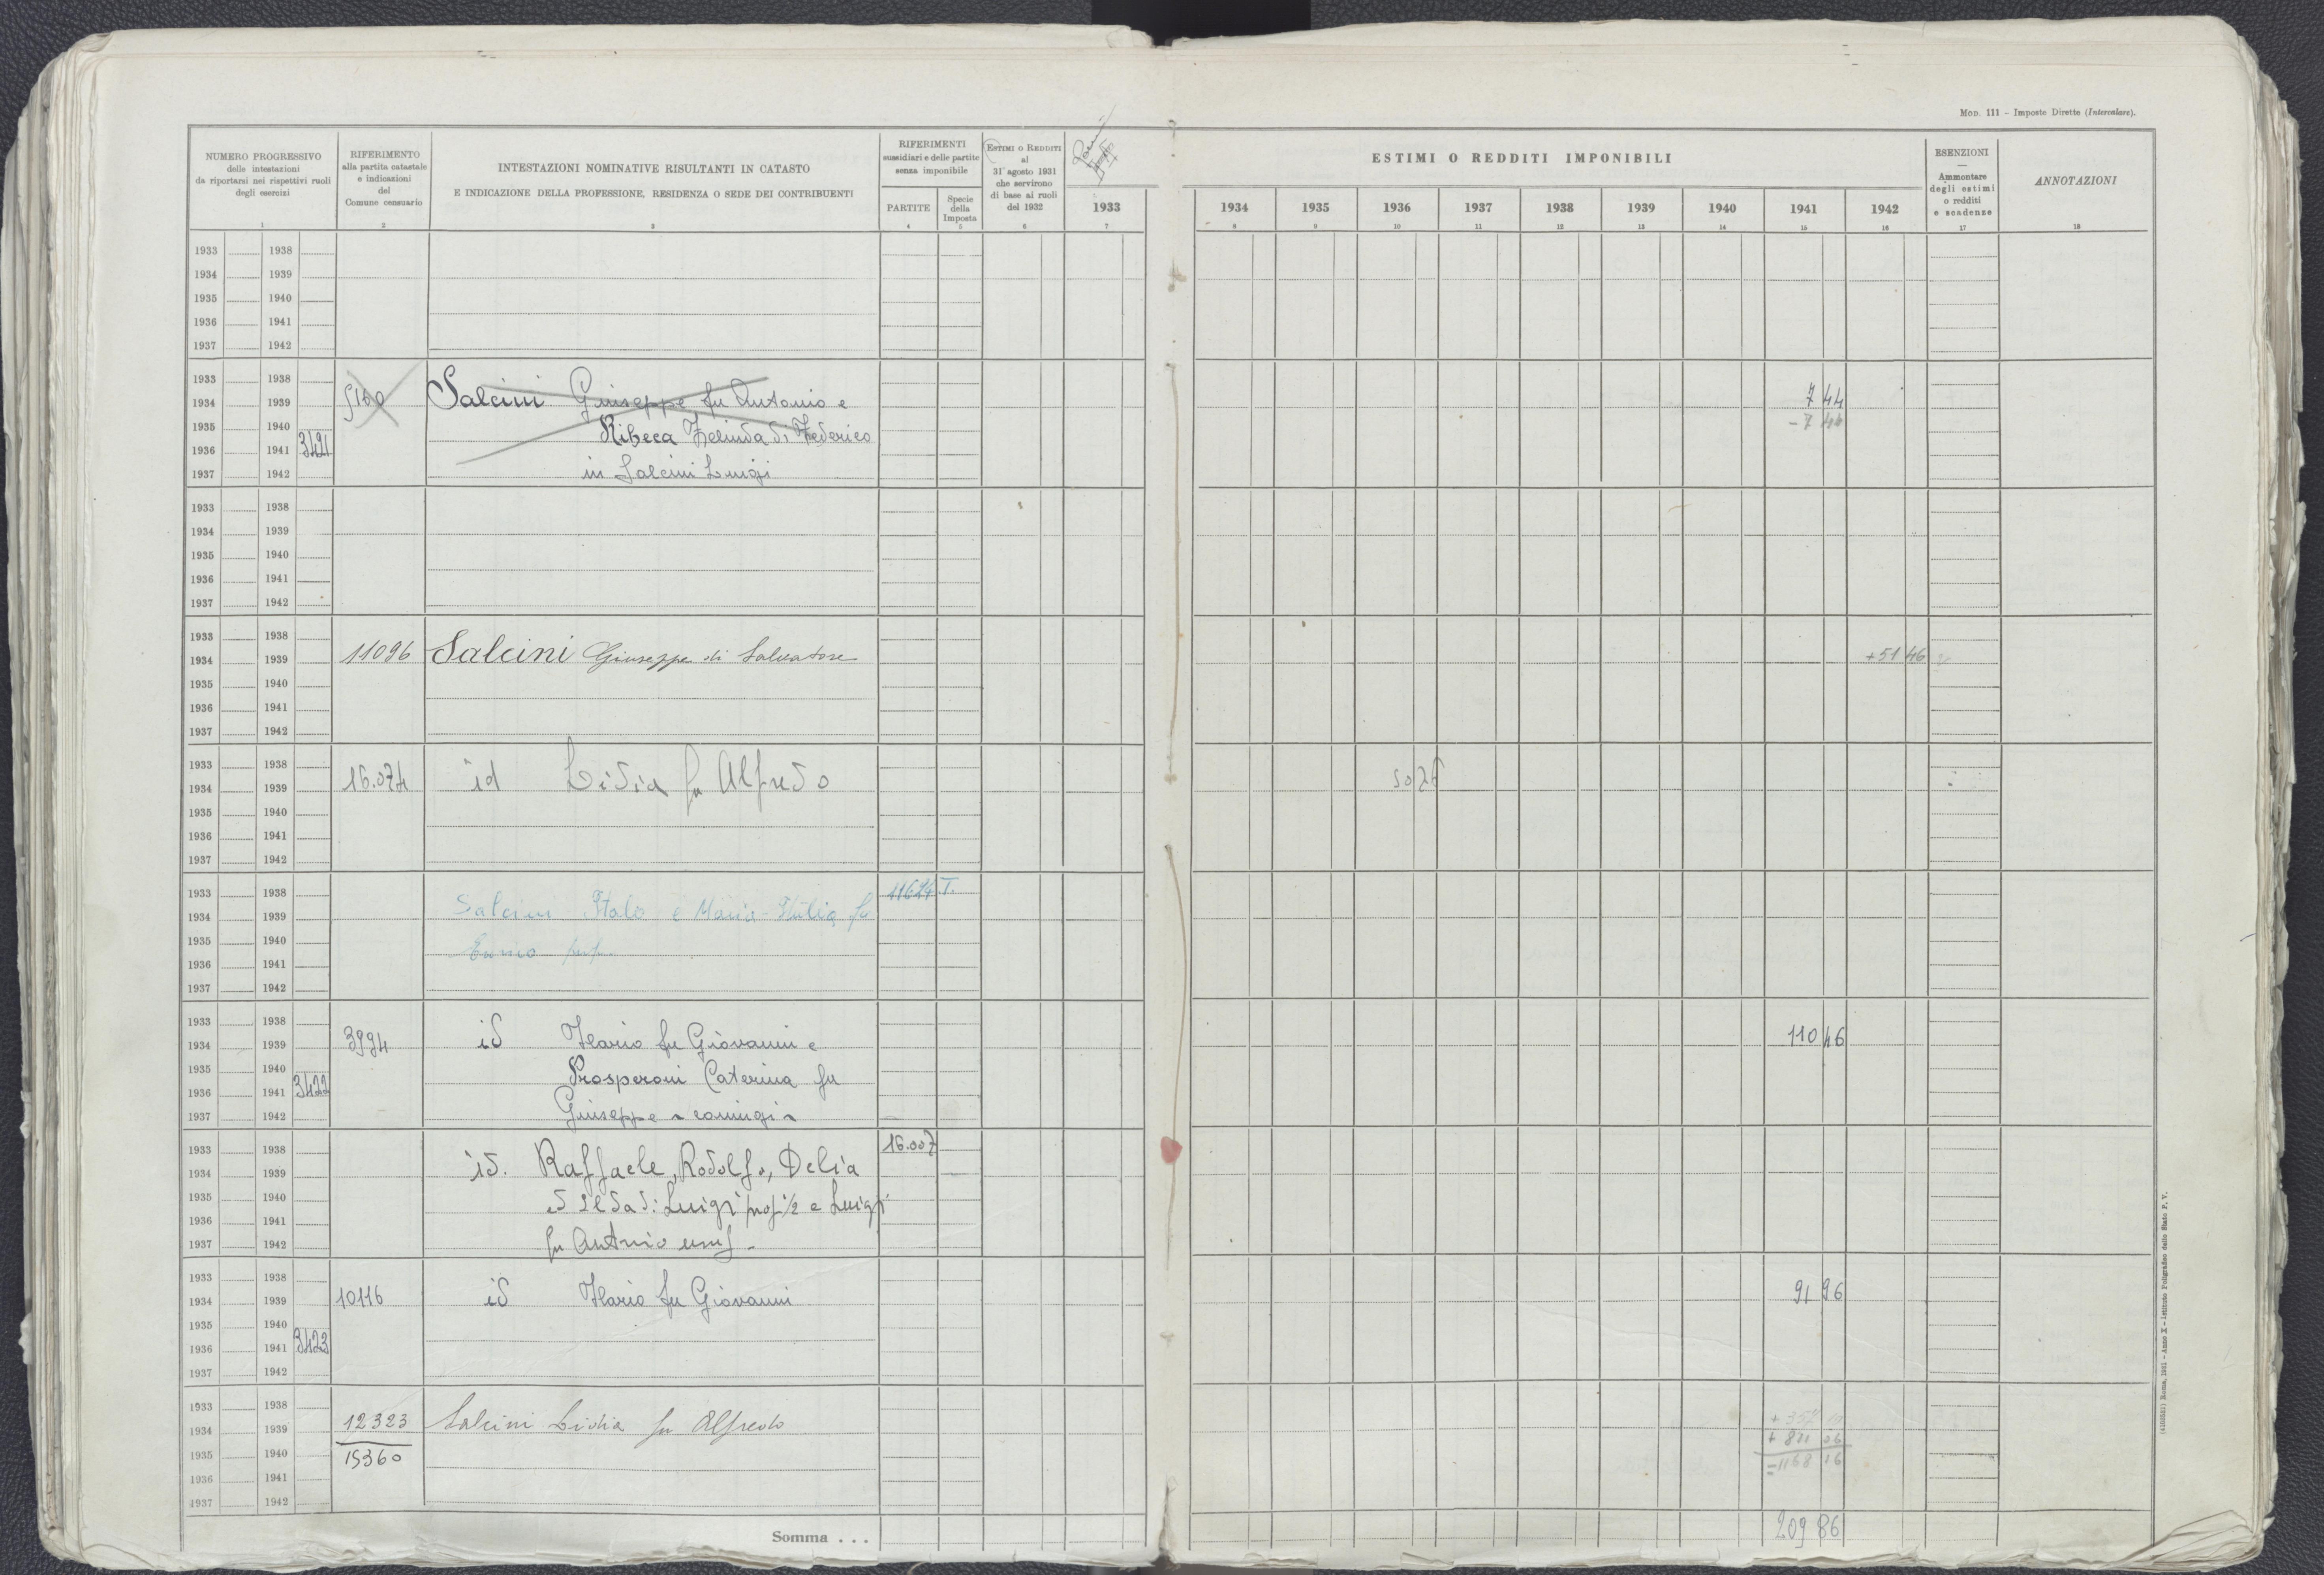 MOD. 111 - Imposte Dirette (Intercalare).
NUMERO PROGRESSIVO
delle intestazioni
da riportarsi nei rispettivi ruoli
degli esercizi
1
RIFERIMENTO
alla partita catastale
e indicazioni
del
Comune censuario
2
INTESTAZIONI NOMINATIVE RISULTANTI IN CATASTO
E INDICAZIONE DELLA PROFESSIONE, RESIDENZA O SEDE DEI CONTRIBUENTI
3
RIFERIMENTI
sussidiari e delle partite
senza imponibile
PARTITE
4
Specie
della
Imposta
5
ESTIMI O REDDITI
al
31 agosto 1931
che servirono
di base ai ruoli
del 1932
6
1933
7
ESTIMI O REDDITI IMPONIBILI
1934 1935 1936 1937 1938 1939 1940 1941 1942
8 9 10 11 12 13 14 15 16
ESENZIONI
Ammontare
degli estimi
o redditi
e scadenze
17
ANNOTAZIONI
18
1933 1938
1934 1939
1935 1940
1936 1941
1937 1942
1933 1938
1934 1939 5160 Salcini Giuseppe fu Antonio e 7 44
1935 1940 Ribeca Zelinda di Federico - 7 44
1936 1941 3421
1937 1942 in Salcini Luigi
1933 1938
1934 1939
1935 1940
1936 1941
1937 1942
1933 1938
1934 1939 11096 Salcini Giuseppe di Salvatore +51 46
1935 1940
1936 1941
1937 1942
1933 1938
1934 1939 16.074 id Lidia fu Alfredo
1935 1940
1936 1941
1937 1942
1933 1938 11624 T.
1934 1939 Salcini Italo e Maria fu
1935 1940
1936 1941
1937 1942
1933 1938
1934 1939 3994 id Ilario fu Giovanni e 110 46
1935 1940 Prosperoni Caterina fu
1936 1941 3422
1937 1942 Giuseppe - coniugi -
1933 1938 16.007
1934 1939 id. Raffaele, Rodolfo, Delia
1935 1940 ed Elda di Luigi prop 1/2 e Luigi
1936 1941
1937 1942 fu Antonio usuf -
1933 1938
1934 1939 10116 id Ilario fu Giovanni 91 96
1935 1940
1936 1941 3423
1937 1942
1933 1938
1934 1939 12323 Salcini Lidia fu Alfredo
1935 1940 15360 =1168 16
1936 1941
1937 1942
Somma . . . 209 86
Roma, 1931 - Anno X - Istituto Poligrafico dello Stato P. V.